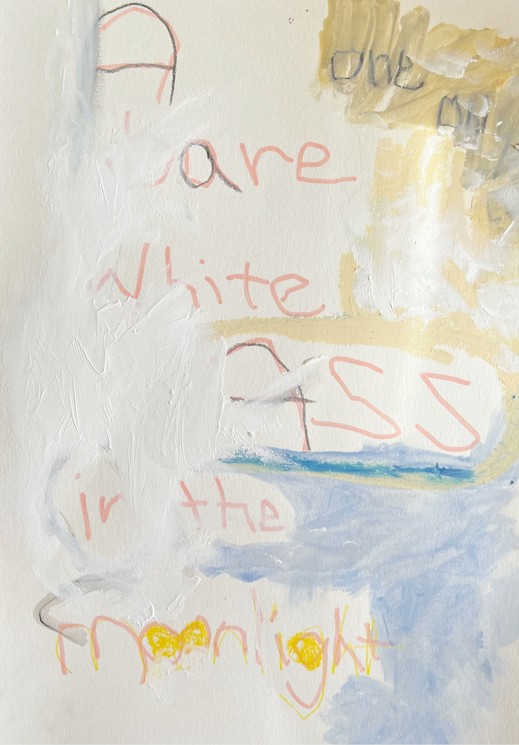 A
one
bare
White
ASS
in the
moonlight